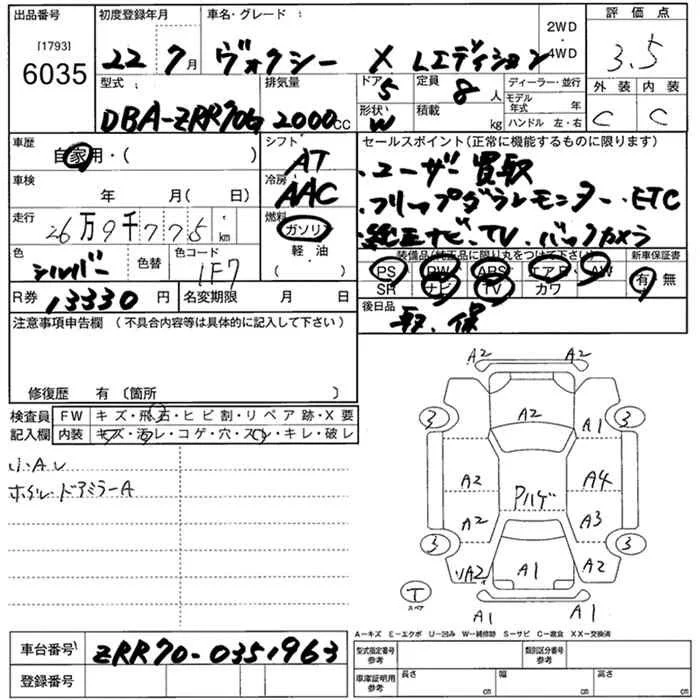 出品番号
[1793]
6035
初度登録年月
22 7月
車名・グレード :
ヴォクシー X Lエディション
2WD
4WD
評価点
3.5
外装 内装
C C
型式
DBA-ZRR70G
排気量
2000cc
ドア
5
形状
W
定員
8人
積載
kg
ディーラー・並行
モデル年式 年
ハンドル 左・右
車歴
自家用・( )
シフト
AT
車検
年 月( 日)
冷房
AAC
走行
26万9千775km
燃料
ガソリン
軽油
色
シルバー
色替
色コード
1F7
R券
13330円
名変期限 月 日
セールスポイント(正常に機能するものに限ります)
・ユーザー買取
・フリップダウンモニター・ETC
・純正ナビ・TV・バックカメラ
装備品(純正品に限り丸をつけて下さい)
新車保証書
PS PW ABS エアB AW
SR ナビ TV カワ
有・無
後日品
取、保
注意事項申告欄(不具合内容等は具体的に記入して下さい)
修復歴 有〔箇所 〕
検査員
記入欄
FW キズ・飛石・ヒビ割・リペア跡・X要
内装 キズ・汚レ・コゲ・穴・スレ・キレ・破レ
小A
ホイル・ドアミラーA
A2 A2
3 A2 A1 3
A2 A4
Pハゲ
A2 A3
3 3
A2 A1 A2
T
スペア
A1 A1
A-キズ E-エクボ U-凹み W-補修跡 S-サビ C-腐食 XX-交換済
車台番号
ZRR70-0351963
登録番号
型式指定番号
参考
類別区分番号
参考
車庫証明用
参考
長さ cm
幅 cm
高さ cm